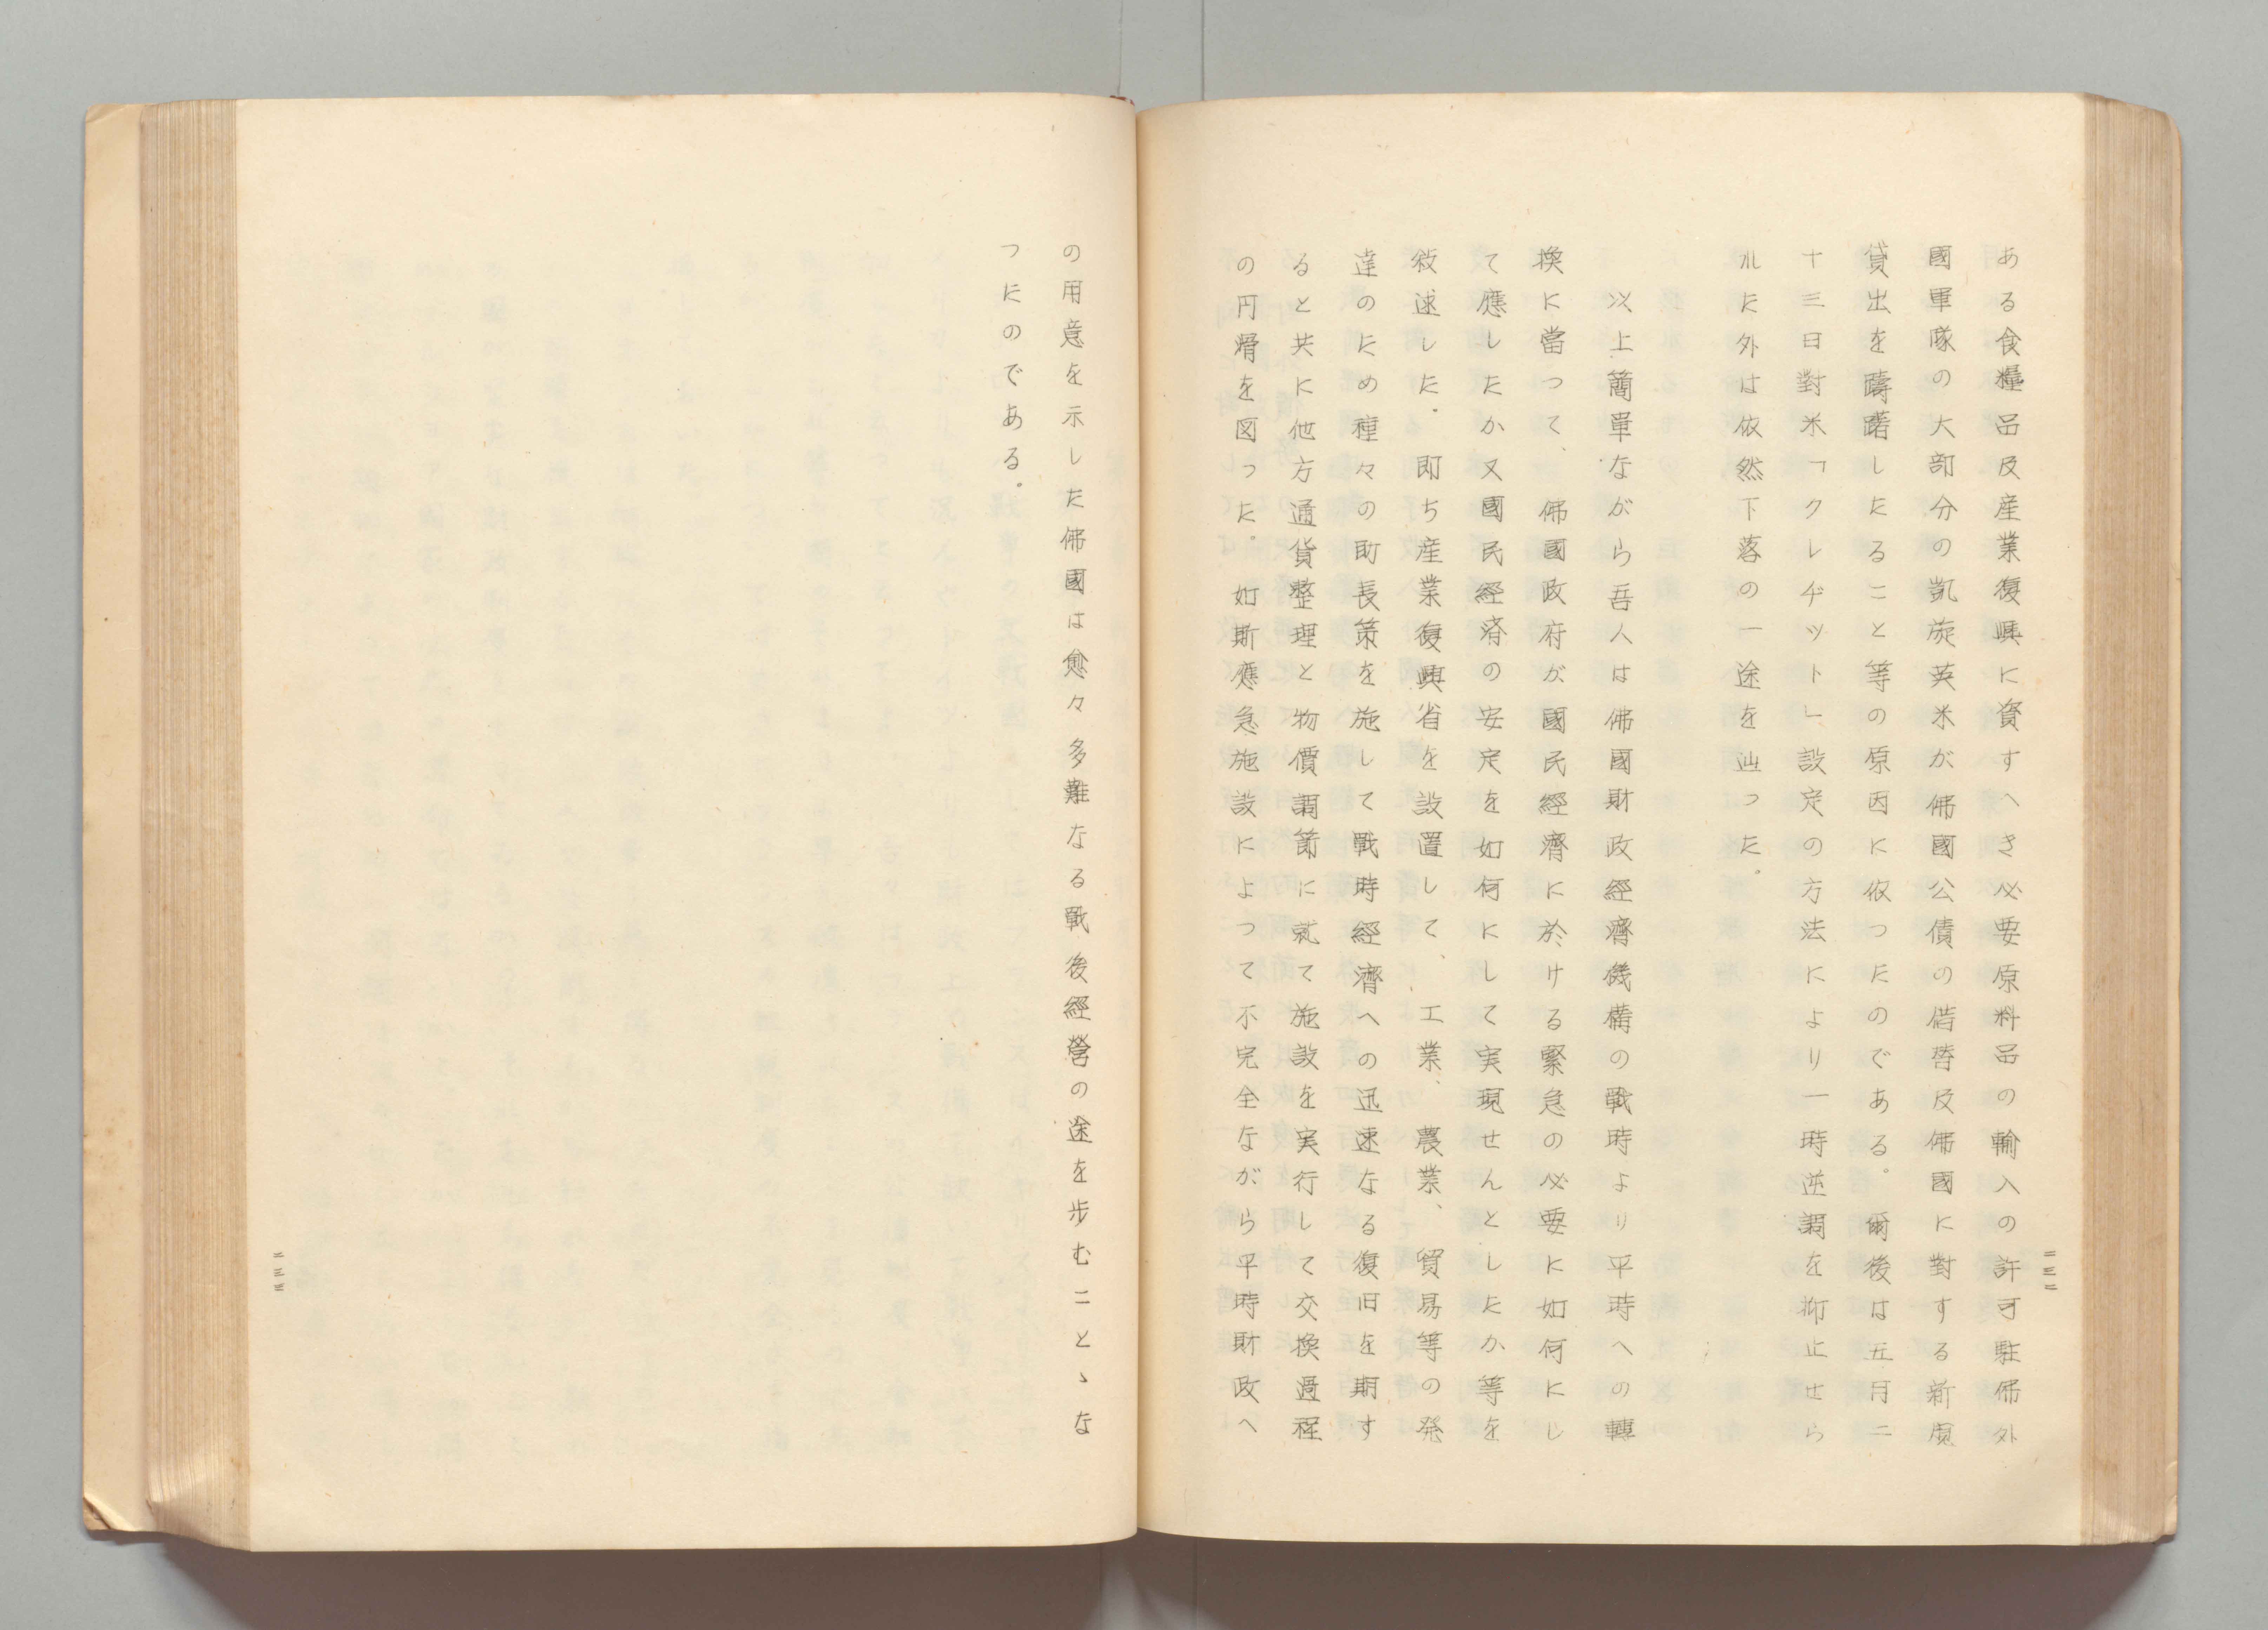 ある食糧品及産業復興に資すへき必要原料品の輸入の許可駐佛外
國軍隊の大部分の凱旋英米が佛國公債の借替及佛國に對する新規
貸出を躊躇したること等の原因に依つたのである。爾後は五月二
十三日對米「クレヂツト」設定の方法により一時逆調を抑止せら
れた外は依然下落の一途を辿った。
以上簡單ながら吾人は佛國財政經濟機構の戰時より平時への轉
換に當つて、佛國政府が國民經濟に於ける緊急の必要に如何にし
て應したか又國民経済の安定を如何にして実現せんとしたか等を
敍述した。即ち産業復興省を設置して、工業、農業、貿易等の発
達のため種々の助長策を施して戰時經濟への迅速なる復旧を期す
ると共に他方通貨整理と物價調節に就て施設を実行して交換過程
の円滑を図つた。如斯應急施設によつて不完全ながら平時財政へ
二三二
の用意を示した佛國は愈々多難なる戰後經營の途を歩むことゝな
つたのである。
二三三